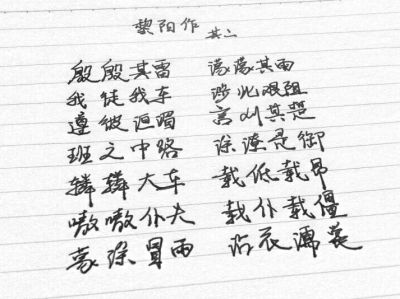 黎阳作 其二
殷殷其雷 濛濛其雨
我徒我车 涉此艰阻
遵彼洹湄 言刈其楚
班之中路 涂潦是御
辚辚大车 载低载昂
嗷嗷仆夫 载仆载僵
蒙涂冒雨 沾衣濡裳